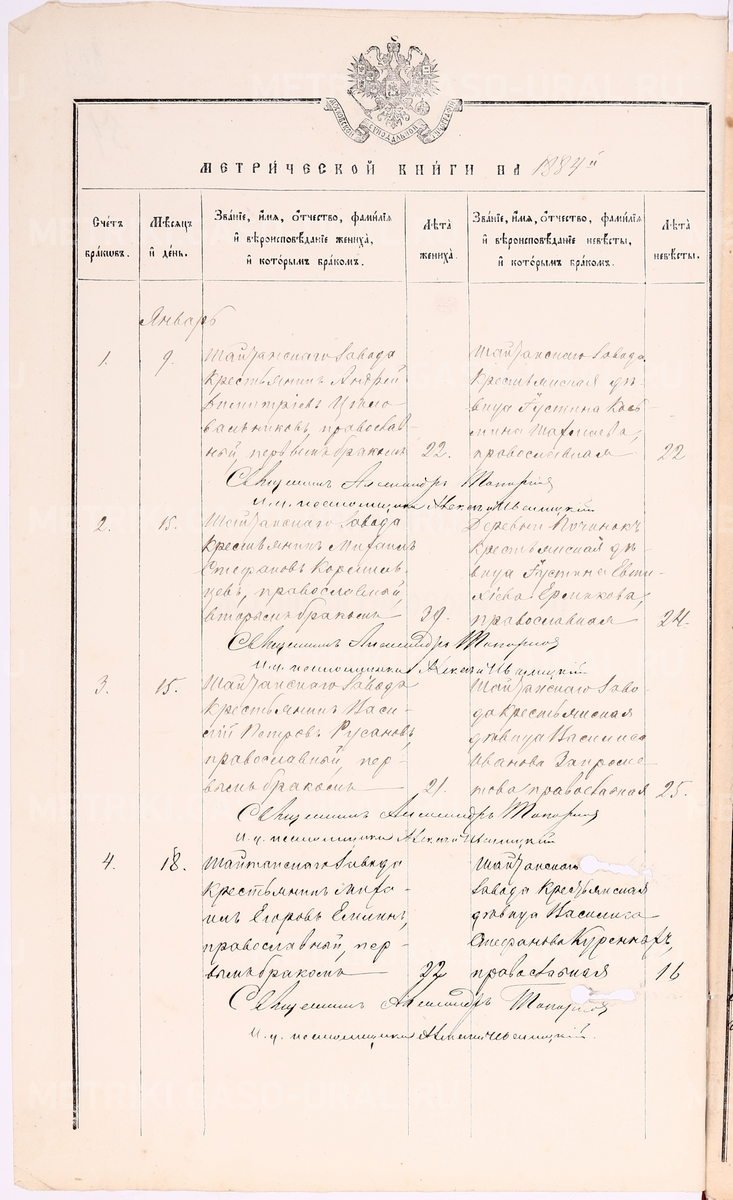 МЕТРИЧЕСКОЙ КНИГИ НА 1884й
Счетъ браковъ.
Мѣсяцъ и день.
Званіе, имя, отчество, фамилія и вѣроисповѣданіе жениха, и которымъ бракомъ.
Лѣта жениха.
Званіе, имя, отчество, фамилія и вѣроисповѣданіе невѣсты, и которымъ бракомъ.
Лѣта невѣсты.
Январь
1. 9.
Шайтанскаго завода
крестьянинъ Андрей
Димитріевъ Цѣло-
вальниковъ, православ-
ный, первымъ бракомъ 22.
Шайтанскаго завода
крестьянская дѣ-
вица Іустина Козь-
мина
православная 22
Священникъ Александръ Топорков
И. д. псаломщика Алексій
2. 15.
Шайтанскаго завода
крестьянинъ Михаилъ
Стефановъ Кормиль-
цевъ, православный,
вторымъ бракомъ 39.
Деревни Починокъ
крестьянская дѣ-
вица Іустина Евти-
хіева Ермакова,
православная 24.
Священникъ Александръ Топорков
И. д. псаломщика Алексій
3. 15.
Шайтанскаго завода
крестьянинъ Васи-
лій Петровъ Русановъ,
православный, пер-
вымъ бракомъ 21.
Шайтанскаго заво-
да крестьянская
дѣвица Василиса
Иванова
православная 25.
Священникъ Александръ Топорков
И. д. псаломщика Алексій
4. 18.
Шайтанскаго завода
крестьянинъ Миха-
илъ Егоровъ Елькинъ,
православный, пер-
вымъ бракомъ 22
Шайтанскаго
завода крестьянская
дѣвица Василиса
Стефанова Куренныхъ,
православная 16
Священникъ Александръ Топорков
И. д. псаломщика Алексій
METRIKI.GASO-URAL.RU